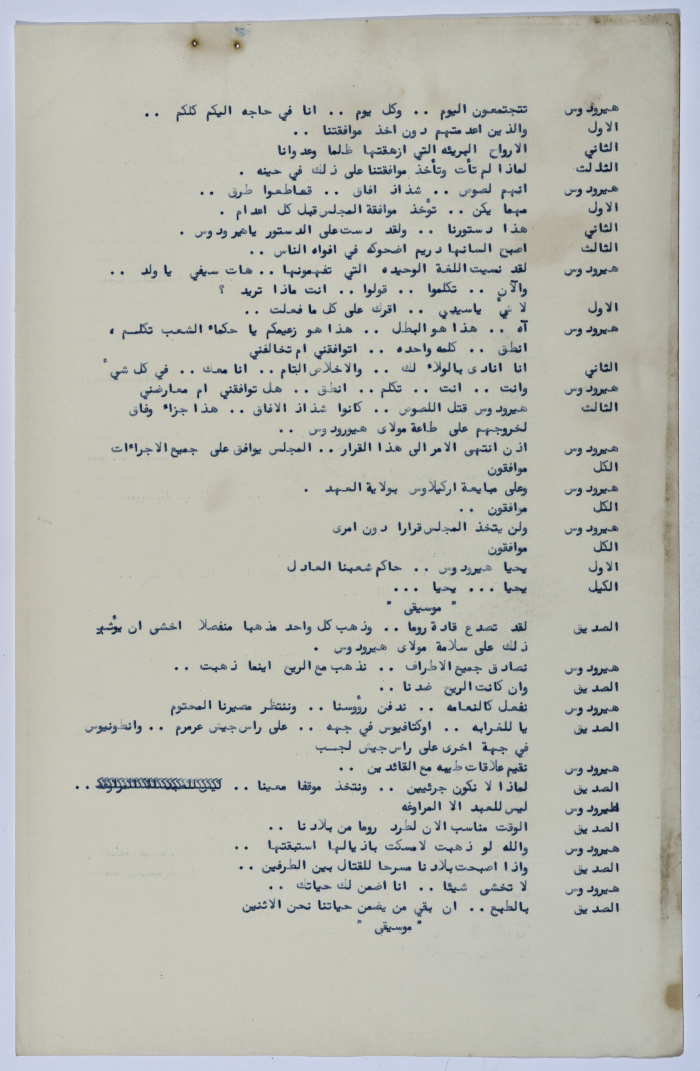 هيرودوس تتجتمعون اليوم .. وكل يوم .. انا في حاجه اليكم كلكم ..
الاول والذين اعدمتهم دون اخذ موافقتنا ..
الثاني الارواح البريئه التي ازهقتها ظلما وعدوانا
الثالث لماذا لم تأت وتأخذ موافقتنا على ذلك في حينه .
هيرودوس انهم لصوص .. شذاذ افاق .. قطاعوا طرق ..
الاول مهما يكن .. تؤخذ موافقة المجلس قبل كل اعدام .
الثاني هذا دستورنا .. ولقد دست على الدستور ياهيرودوس .
الثالث اصبح السانهادريم اضحوكه في افواه الناس ..
هيرودوس لقد نسيت اللغة الوحيده التي تفهمونها .. هات سيفي يا ولد ..
والآن .. تكلموا .. قولوا .. انت ماذا تريد ؟
الاول لا شيء ياسيدي .. اقرك على كل ما فعلت ..
هيرودوس آه .. هذا هو البطل .. هذا هو زعيمكم يا حكماء الشعب تكلم ،
انطق .. كلمه واحده .. اتوافقني ام تخالفني
الثاني انا انادى بالولاء لك .. والاخلاص التام .. انا معك .. في كل شيء
هيرودوس وانت .. انت .. تكلم .. انطق .. هل توافقني ام معارضني
الثالث هيرودوس قتل اللصوص .. كانوا شذاذ الافاق .. هذا جزاء وفاق
لخروجهم على طاعة مولاى هيورودوس ..
هيرودوس اذن انتهى الامر الى هذا القرار .. المجلس يوافق على جميع الاجراءات
الكل موافقون
هيرودوس وعلى مبايعة اركيلاوس بولاية العهد .
الكل موافقون ..
هيرودوس ولن يتخذ المجلس قرارا دون امرى
الكل موافقون
الاول يحيا هيرودوس .. حاكم شعبنا العادل
الكيل يحيا ... يحيا ...
" موسيقى "
الصديق لقد تصدع قادة روما .. وذهب كل واحد مذهبا منفصلا اخشى ان يؤثر
ذلك على سلامة مولاى هيرودوس .
هيرودوس نصادق جميع الاطراف .. نذهب مع الريح اينما ذهبت ..
الصديق وان كانت الريح ضدنا ..
هيرودوس نفعل كالنعامه .. ندفن رؤوسنا .. وننتظر مصيرنا المحتوم
الصديق يا للغرابه .. اوكتافيوس في جهه .. على راس جيش عرمرم .. وانطونيوس
في جهة اخرى على راس جيش لجب
هيرودوس نقيم علاقات طيبه مع القائدين ..
الصديق لماذا لا نكون جرئيين .. ونتخذ موقفا معينا .. ..
هيرودوس ليس للعبد الا المراوغه
الصديق الوقت مناسب الان لطرد روما من بلادنا ..
هيرودوس والله لو ذهبت لامسكت باذيالها استبقتها ..
الصديق واذا اصبحت بلادنا مسرحا للقتال بين الطرفين ..
هيرودوس لا تخشى شيئا .. انا اضمن لك حياتك ..
الصديق بالطبع .. ان بقي من يضمن حياتنا نحن الاثنين
" موسيقى "